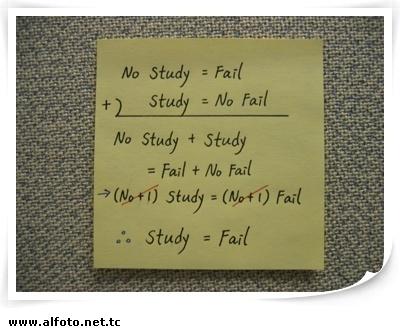 No Study = Fail
+) Study = No Fail
No Study + Study
= Fail + No Fail
→ (No+1) Study = (No+1) Fail
∴ Study = Fail
www.alfoto.net.tc